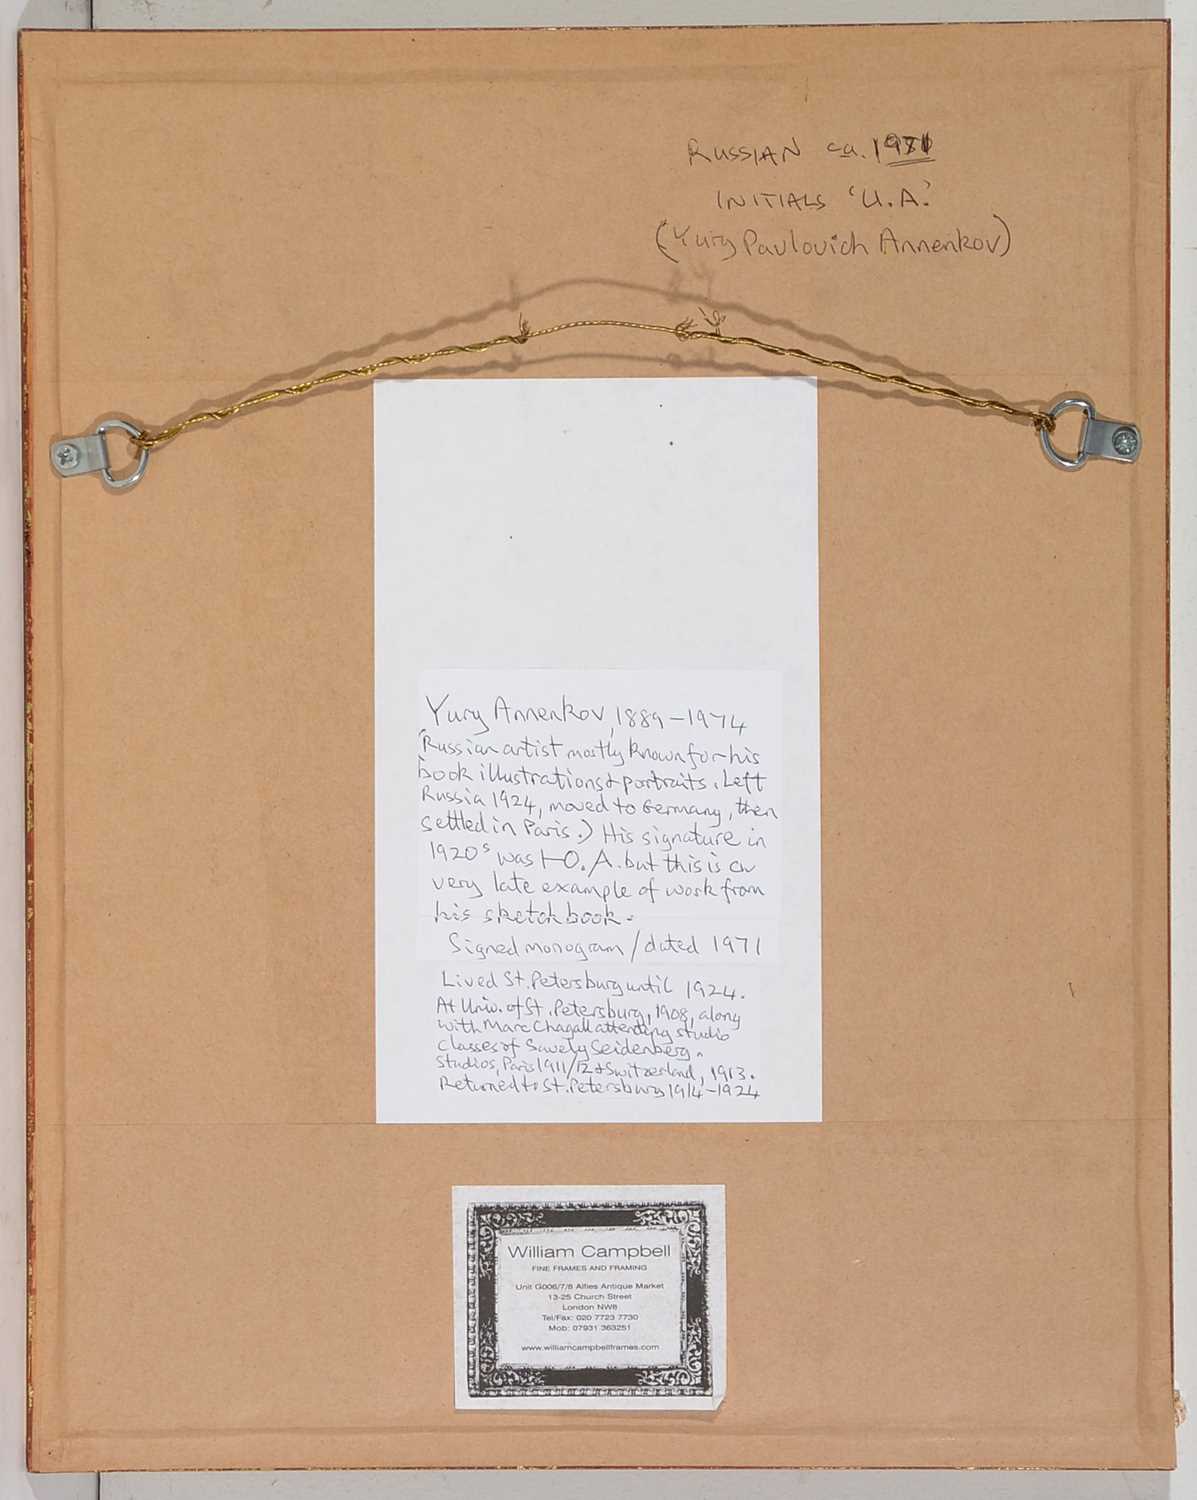 RUSSIAN ca. 1971
INITIALS 'U.A.'
(Yury Pavlovich Annenkov)
Yury Annenkov, 1889-1974
(Russian artist mostly known for his
book illustrations & portraits. Left
Russia 1924, moved to Germany, then
settled in Paris.) His signature in
1920s was Ю.A. but this is a
very late example of work from
his sketchbook.
Signed monogram / dated 1971
Lived St. Petersburg until 1924.
At Univ. of St. Petersburg, 1908, along
with Marc Chagall attending studio
classes of Savely Seidenberg.
Studios, Paris 1911/12 & Switzerland, 1913.
Returned to St. Petersburg 1914-1924
William Campbell
FINE FRAMES AND FRAMING
Unit G006/7/8 Alfies Antique Market
13-25 Church Street
London NW8
Tel/Fax: 020 7723 7730
Mob: 07931 363251
www.williamcampbellframes.com